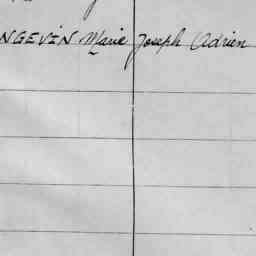 NGEVIN Marie Joseph Adrien